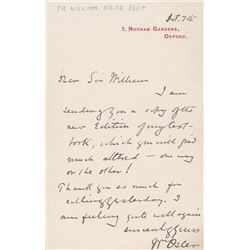 SIR WILLIAM OSLER BART
Oct. 7th
7, NORHAM GARDENS,
OXFORD.
Dear Sir William
I am
sending you a copy of the
new Edition of my text-
book, which you will find
much altered – one way
or the other!
Thank you so much for
calling yesterday. I
am feeling quite well again
sincerely yours
Wm Osler